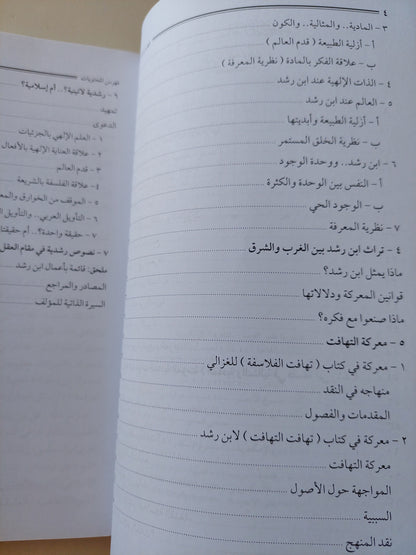 ٤
٣ - المادية.. والمثالية.. والكون
أ - أزلية الطبيعة ( قدم العالم )
ب - علاقة الفكر بالمادة ( نظرية المعرفة )
٤ - الذات الإلهية عند ابن رشد
٥ - العالم عند ابن رشد
أ - أزلية الطبيعة وأبديتها
ب - نظرية الخلق المستمر
٦ - ابن رشد.. ووحدة الوجود
أ - النفس بين الوحدة والكثرة
ب - الوجود الحي
٧ - نظرية المعرفة
٤ - تراث ابن رشد بين الغرب والشرق
ماذا يمثل ابن رشد؟
قوانين المعركة ودلالاتها
ماذا صنعوا مع فكره؟
٥ - معركة التهافت
١ - معركة في كتاب ( تهافت الفلاسفة ) للغزالي
منهاجه في النقد
المقدمات والفصول
٢ - معركة في كتاب ( تهافت التهافت ) لابن رشد
معركة التهافت
المواجهة حول الأصول
السببية
نقد المنهج
فهرس المحتويات
٦ - رشدية لاتينية؟.. أم إسلامية؟
تمهيد
الدعوى
١ - العلم الإلهي بالجزئيات
٢ - علاقة العناية الإلهية بالأفعال
٣ - قدم العالم
٤ - علاقة الفلسفة بالشريعة
٥ - الموقف من الخوارق والمع
٦ - التأويل العربي.. والتأويل
٧ - حقيقة واحدة؟.. أم حقيقتا
٧ - نصوص رشدية في مقام العقل
ملحق: قائمة بأعمال ابن رشد
المصادر والمراجع
السيرة الذاتية للمؤلف